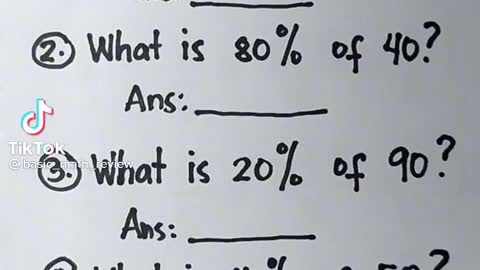 Ans:
② What is 80% of 40?
Ans:
TikTok
@basic_math_review
③ What is 20% of 90?
Ans:
What is